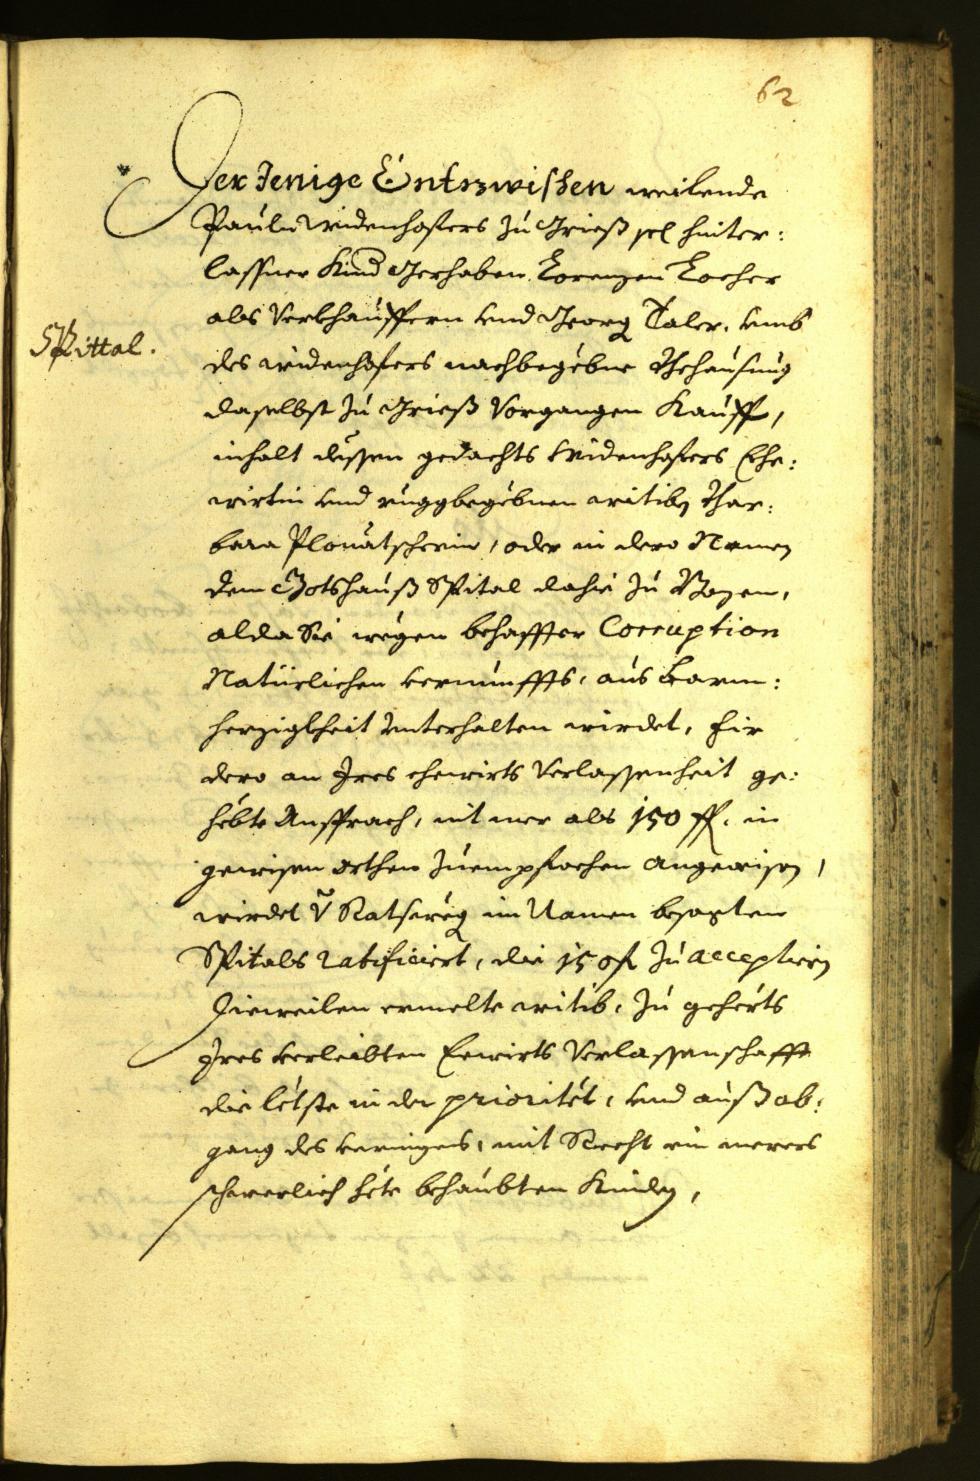 62
Der Jenige Entzwischen weilende
Pauln Widenhofers zu Griess sel hinter:
lassner Kind Gerhaben Lorenzen Locher
als Verkhauffern und Georg Taler, umb
Spittal.
des widenhofers nachbegebne Behausung
daselbst zu Griess Vorgangen Kauff,
inhalt dessen gedachts Widenhofers Ehe:
wirtin und ruggbegebnen witib Bar:
bara Plonatscherin, oder in dero Namen
dem Gotshauß Spital dahie zu Bozen,
alda Sie wegen behaffter Corruption
Natürlichen vernunffts, aus Barm:
herzigkheit Unterhalten wirdet, Fir
dero an Ires ehewirts Verlassenheit ge:
hebte Ansprach, nit mer als 150 fl. in
gewisen orthen zuempfachen angewisen,
wirdet von Ratsweg im Namen besagten
Spitals ratificiert, die 150 fl zu acceptiern
Dieweilen ermelte witib, zu geherts
Ires verleibten Eewirts Verlassenschafft
die letste in der prioritet, und auß ab:
gang des vermigens, mit Recht ein merers
schwerlich hete behaubten Kinden,